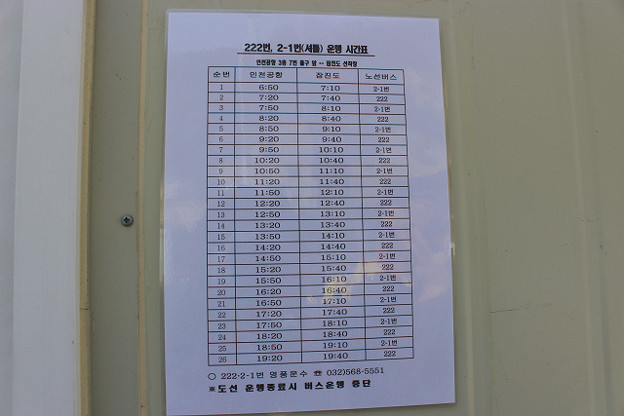 222번, 2-1번(셔틀) 운행 시간표
인천공항 3층 7번 출구 앞 ↔ 잠진도 선착장
순 번 인천공항 잠진도 노선버스
1 6:50 7:10 2-1번
2 7:20 7:40 222
3 7:50 8:10 2-1번
4 8:20 8:40 222
5 8:50 9:10 2-1번
6 9:20 9:40 222
7 9:50 10:10 2-1번
8 10:20 10:40 222
9 10:50 11:10 2-1번
10 11:20 11:40 222
11 11:50 12:10 2-1번
12 12:20 12:40 222
13 12:50 13:10 2-1번
14 13:20 13:40 222
15 13:50 14:10 2-1번
16 14:20 14:40 222
17 14:50 15:10 2-1번
18 15:20 15:40 222
19 15:50 16:10 2-1번
20 16:20 16:40 222
21 16:50 17:10 2-1번
22 17:20 17:40 222
23 17:50 18:10 2-1번
24 18:20 18:40 222
25 18:50 19:10 2-1번
26 19:20 19:40 222
○ 222·2-1번 영풍운수 ☎ 032)568-5551
※도선 운행종료시 버스운행 중단